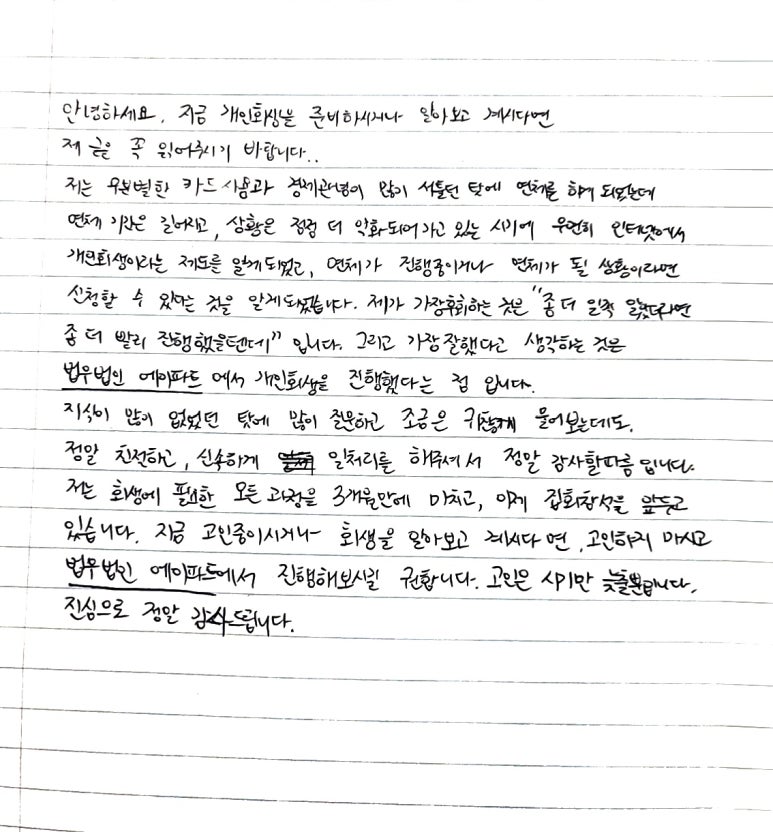 안녕하세요. 지금 개인회생을 준비하시거나 알아보고 계시다면
제 글은 꼭 읽어주시기 바랍니다..
저는 무분별한 카드 사용과 경제관념이 많이 서툴던 탓에 연체를 하게 되었는데
연체 기간은 길어지고, 상황은 점점 더 악화되어가고 있는 시기에 우연히 인터넷에서
개인회생이라는 제도를 알게되었고, 연체가 진행중이거나 연체가 될 상황이라면
신청할 수 있다는 것을 알게되었습니다. 제가 가장후회하는 것은 "좀 더 일찍 알았더라면
좀 더 빨리 진행했을텐데" 입니다. 그리고 가장잘했다고 생각하는 것은
법무법인 에이파트 에서 개인회생을 진행했다는 점 입니다.
지식이 많이 없었던 탓에 많이 질문하고 조금은 귀찮게 물어보는데도,
정말 친절하고, 신속하게 일처리를 해주셔서 정말 감사할따름 입니다.
저는 회생에 필요한 모든 과정을 3개월만에 마치고, 이제 집회참석을 앞두고
있습니다. 지금 고민중이시거나 회생을 알아보고 계시다면, 고민하지 마시고
법무법인 에이파트에서 진행해보시길 권합니다. 고민은 시기만 늦출뿐입니다.
진심으로 정말 감사드립니다.